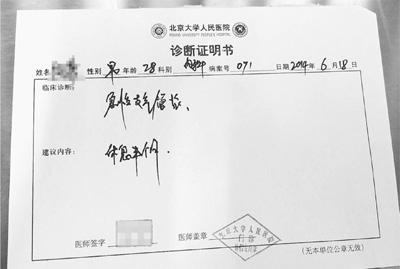 北京大学人民医院
PEKING UNIVERSITY PEOPLE'S HOSPITAL
诊断证明书
姓名 性别 男 年龄 28 科别 病案号 071 日期 2014 年 6 月 18 日
临床诊断:
建议内容:
休息
医师签字 医师盖章
北京大学人民医院
(无本单位公章无效)